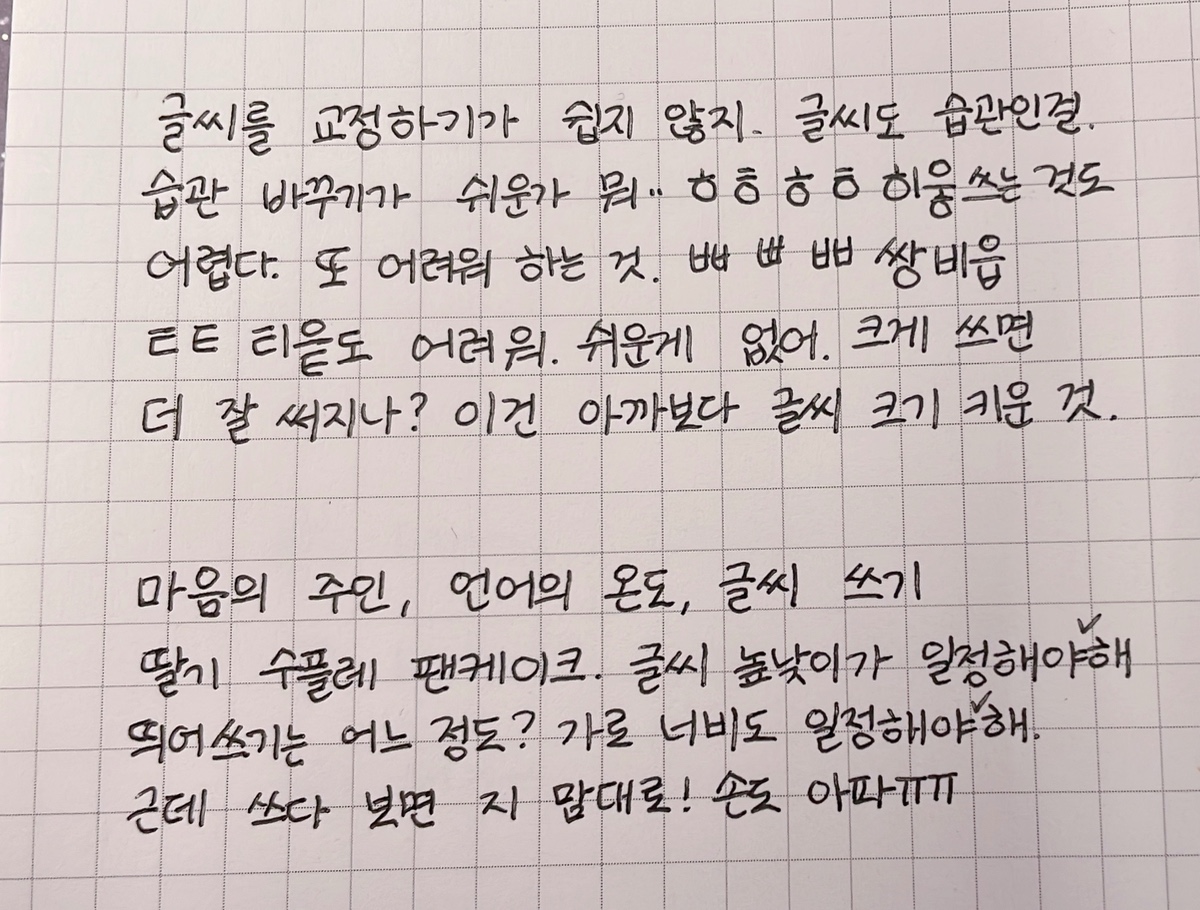 글씨를 교정하기가 쉽지 않지. 글씨도 습관인걸.
습관 바꾸기가 쉬운가 뭐.. ㅎ ㅎ ㅎ ㅎ 히웅쓰는 것도
어렵다. 또 어려워 하는 것. ㅃ ㅃ ㅃ 쌍비읍
ㅌㅌ 티읕도 어려워. 쉬운게 없어. 크게 쓰면
더 잘 써지나? 이건 아까보다 글씨 크기 키운 것.
마음의 주인, 언어의 온도, 글씨 쓰기
딸기 수플레 팬케이크. 글씨 높낮이가 일정해야✓해
띄어쓰기는 어느 정도? 가로 너비도 일정해야✓해.
근데 쓰다 보면 지 맘대로! 손도 아파ㅠㅠ